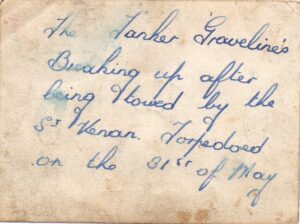 The Tanker 'Graveline's
Breaking up after
being towed by the
St Kenan. Torpedoed
on the 31st of May